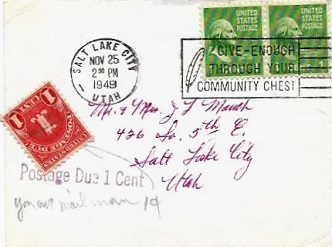 SALT LAKE CITY
NOV 25
2 PM
1949
UTAH
UNITED STATES POSTAGE
UNITED STATES POSTAGE
GIVE-ENOUGH
THROUGH YOUR
COMMUNITY CHEST
Mr. & Mrs. J L
426 So. 5th E.
Salt Lake City
Utah
1
1
POSTAGE DUE
Postage Due 1 Cent
mail man 1¢